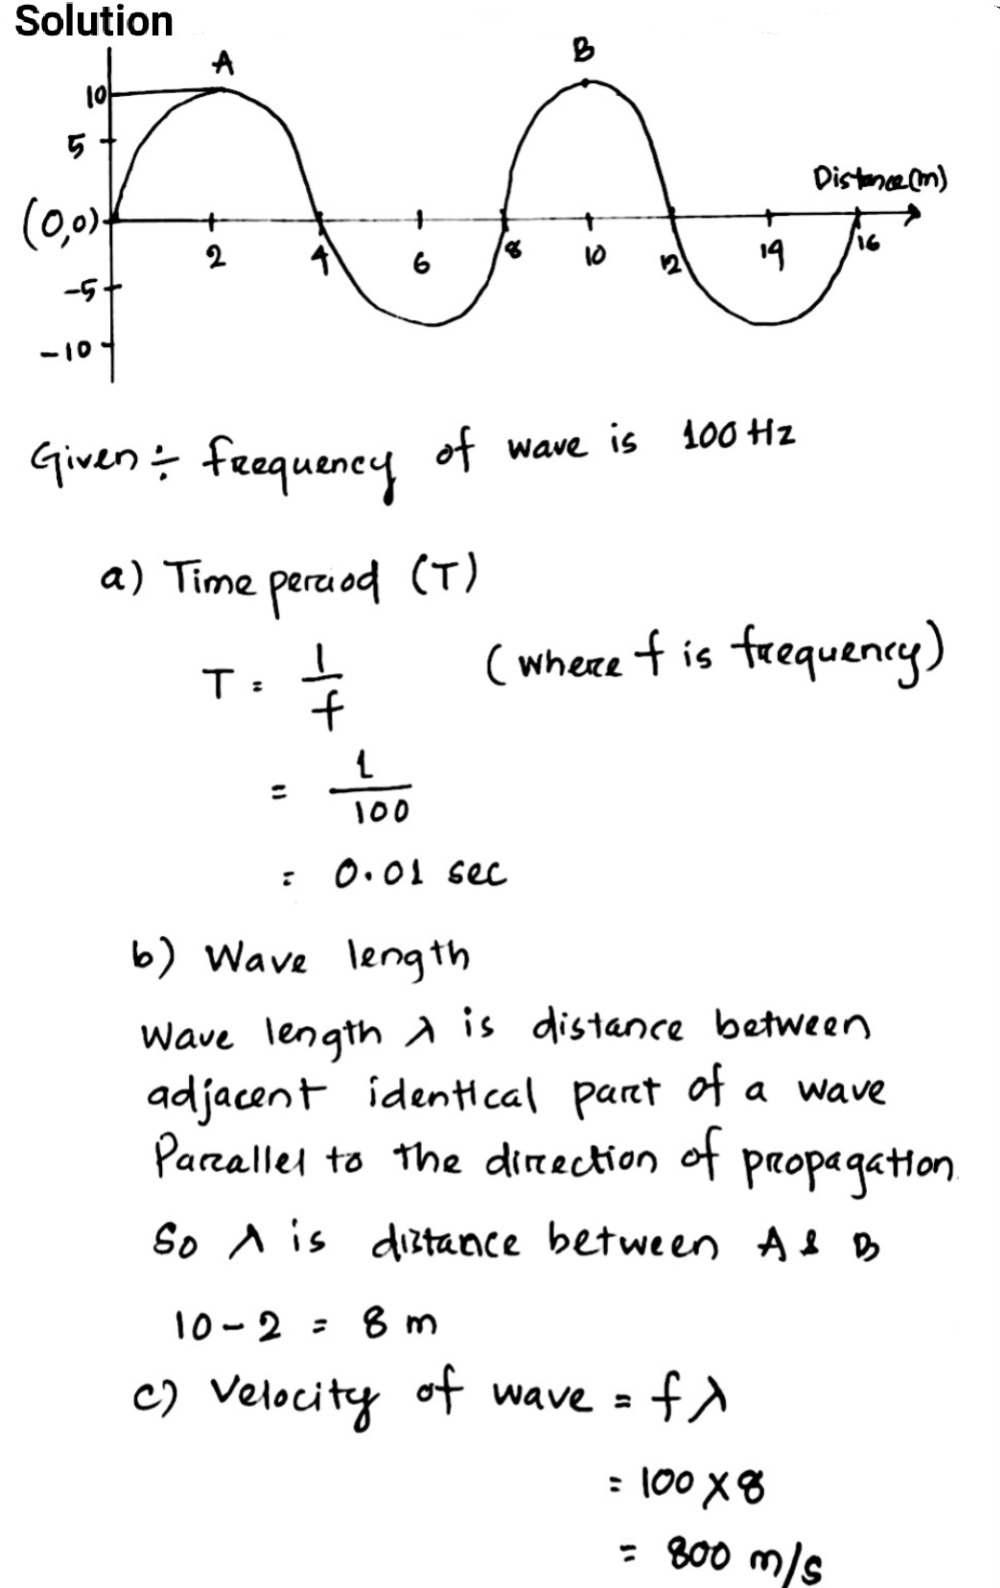 Solution
A
B
10
5
Distance(m)
(0,0)
2
4
6
8
10
12
14
16
-5
-10
Given ÷ frequency of wave is 100 Hz
a) Time period (T)
T = 1/f (where f is frequency)
= 1/100
= 0.01 sec
b) Wave length
Wave length λ is distance between
adjacent identical part of a wave
Parallel to the direction of propagation.
So λ is distance between A & B
10 - 2 = 8 m
c) Velocity of wave = fλ
= 100 X 8
= 800 m/s